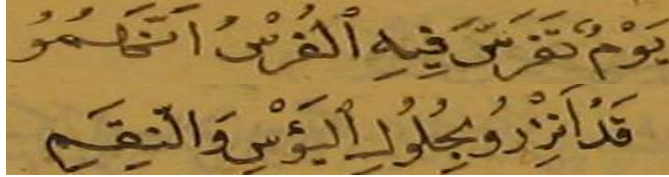 يَوْمٌ تَفَرَّسَ فِيهِ ٱلْفُرْسُ أَنَّهُمُو
قَدْ أُنْذِرُو بِحُلُولِ ٱلْبُؤْسِ وَالنِّقَمِ